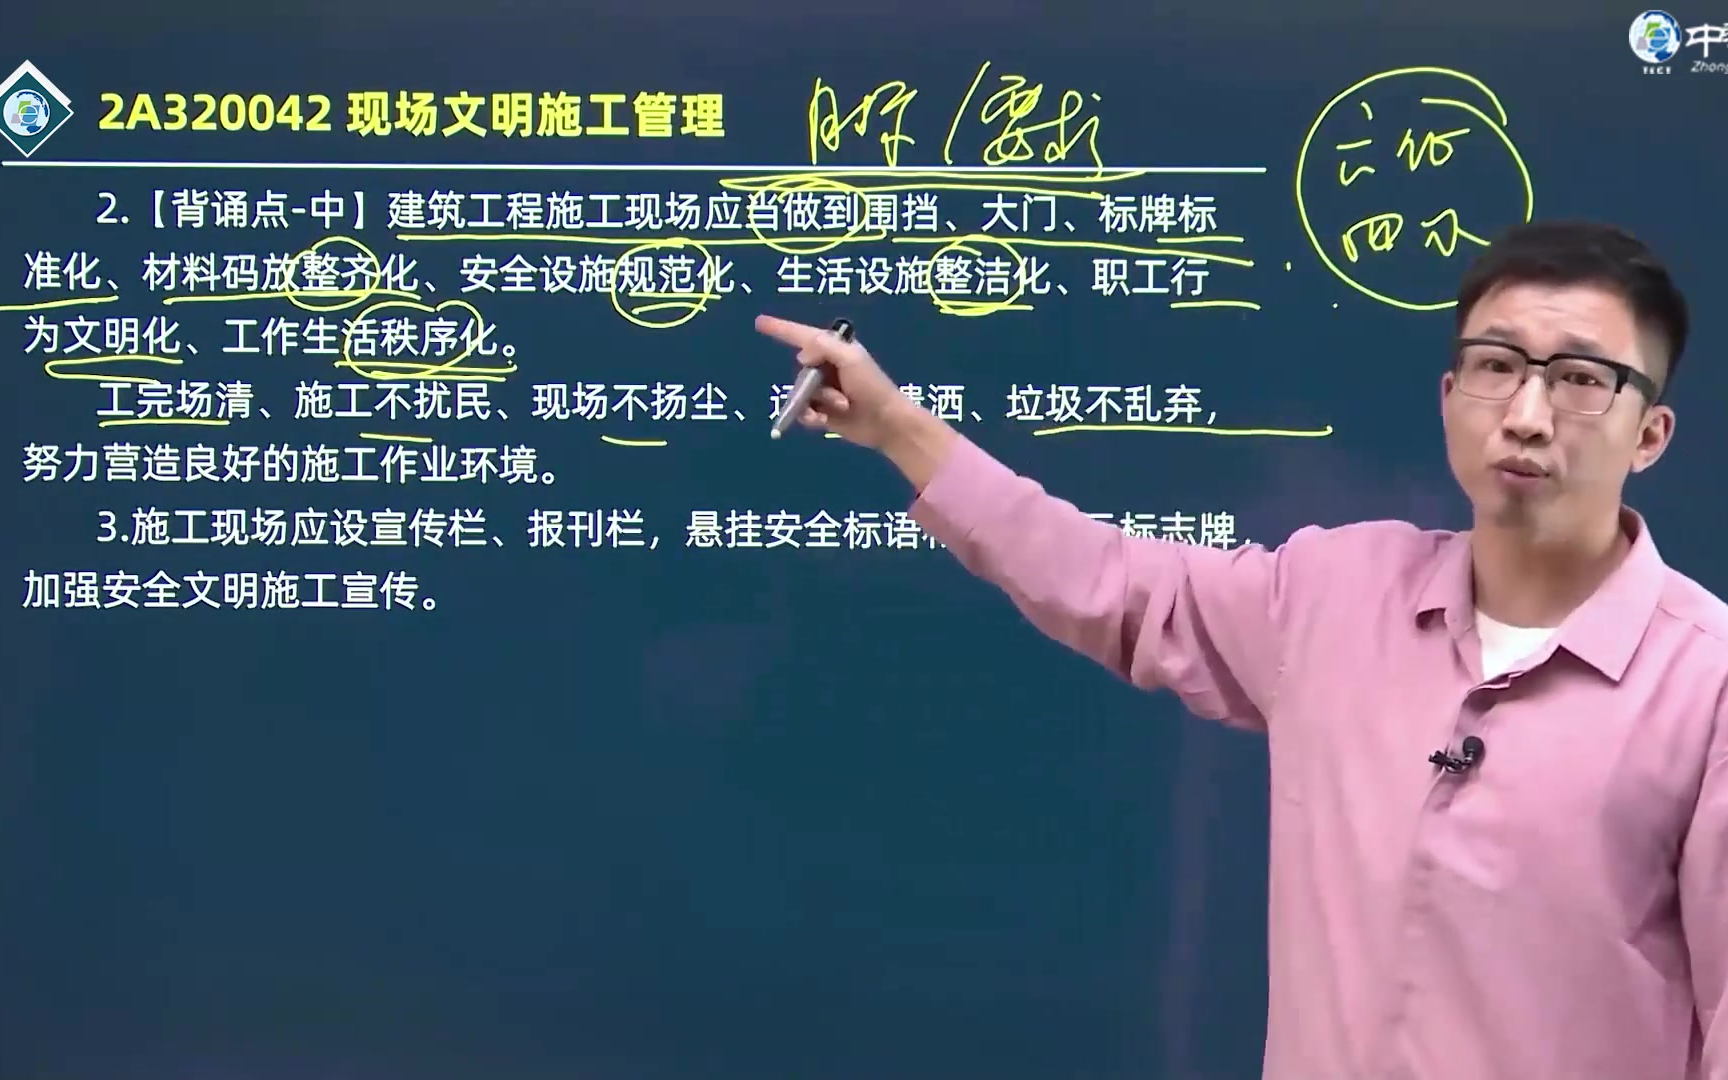 中
Zhong
TECT
2A320042 现场文明施工管理
目标/要求
六化
四不
2.【背诵点-中】建筑工程施工现场应当做到围挡、大门、标牌标
准化、材料码放整齐化、安全设施规范化、生活设施整洁化、职工行
为文明化、工作生活秩序化。
工完场清、施工不扰民、现场不扬尘、遗洒、垃圾不乱弃,
努力营造良好的施工作业环境。
3.施工现场应设宣传栏、报刊栏,悬挂安全标语 标志牌,
加强安全文明施工宣传。